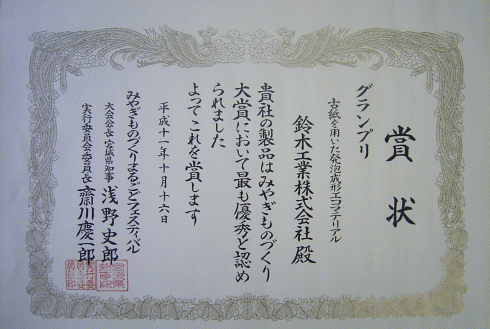 賞状
グランプリ
古紙を用いた発泡成形エコマテリアル
鈴木工業株式会社 殿
貴社の製品はみやぎものづくり
大賞において最も優秀と認め
られました
よってこれを賞します
平成十一年十月十六日
みやぎものづくりまるごとフェスティバル
大会会長 宮城県知事 浅野史郎
実行委員会委員長 齋川慶一郎